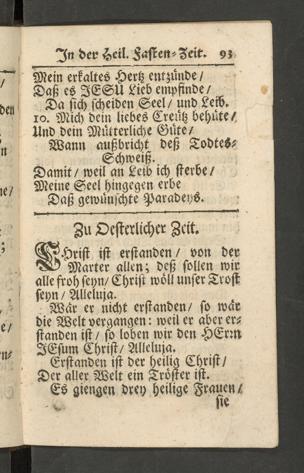 In der Heil. Fasten-Zeit. 93
Mein erkaltes Hertz entzünde /
Daß es JESU Lieb empfinde /
Da sich scheiden Seel / und Leib.
10. Mich dein liebes Creutz behüte /
Und dein Mütterliche Güte /
Wann außbricht deß Todtes-
Schweiß.
Damit / weil an Leib ich sterbe /
Meine Seel hingegen erbe
Daß gewünschte Paradeys.
Zu Oesterlicher Zeit.
CHrist ist erstanden / von der
Marter allen; deß sollen wir
alle froh seyn / Christ wöll unser Trost
seyn / Alleluja.
Wär er nicht erstanden / so wär
die Welt vergangen: weil er aber er-
standen ist / so loben wir den HErrn
JEsum Christ / Alleluja.
Erstanden ist der heilig Christ /
Der aller Welt ein Tröster ist.
Es giengen drey heilige Frauen /
sie